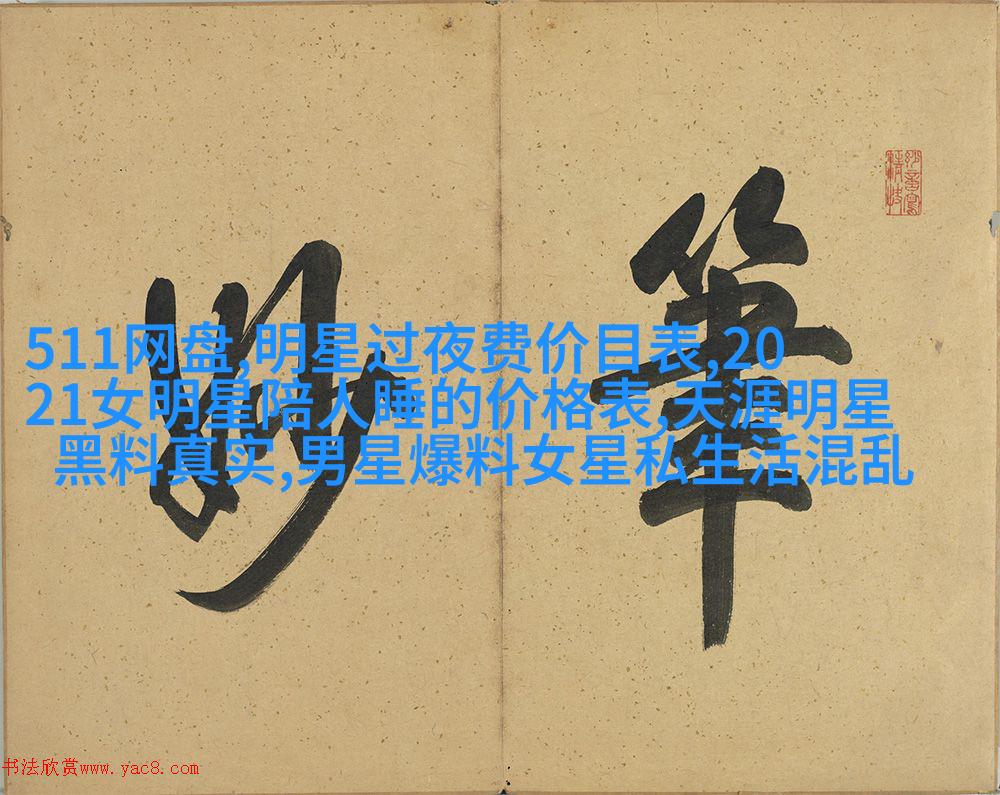 妙筆
511网盘,明星过夜费价目表,20
21女明星陪人睡的价格表,天涯明星
黑料真实,男星爆料女星私生活混乱
书法欣赏www.yac8.com